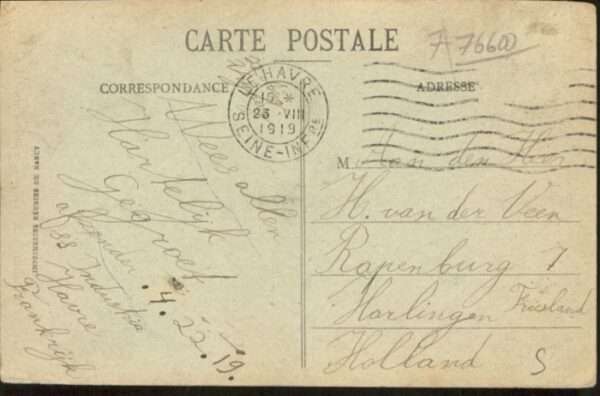 CARTE POSTALE
7-7660
CORRESPONDANCE
ADRESSE
LE HAVRE
23 VIII
1919
SEINE-INFRE
Wees allen
Hartelijk
Gegroet
afzender
SS Industria
Havre
Frankrijk
22.19.
M Aan den Heer
H. van der Veen
Rapenburg 7
Harlingen Friesland
Holland
S
IMPRIMERIES RÉUNIES DE NANCY